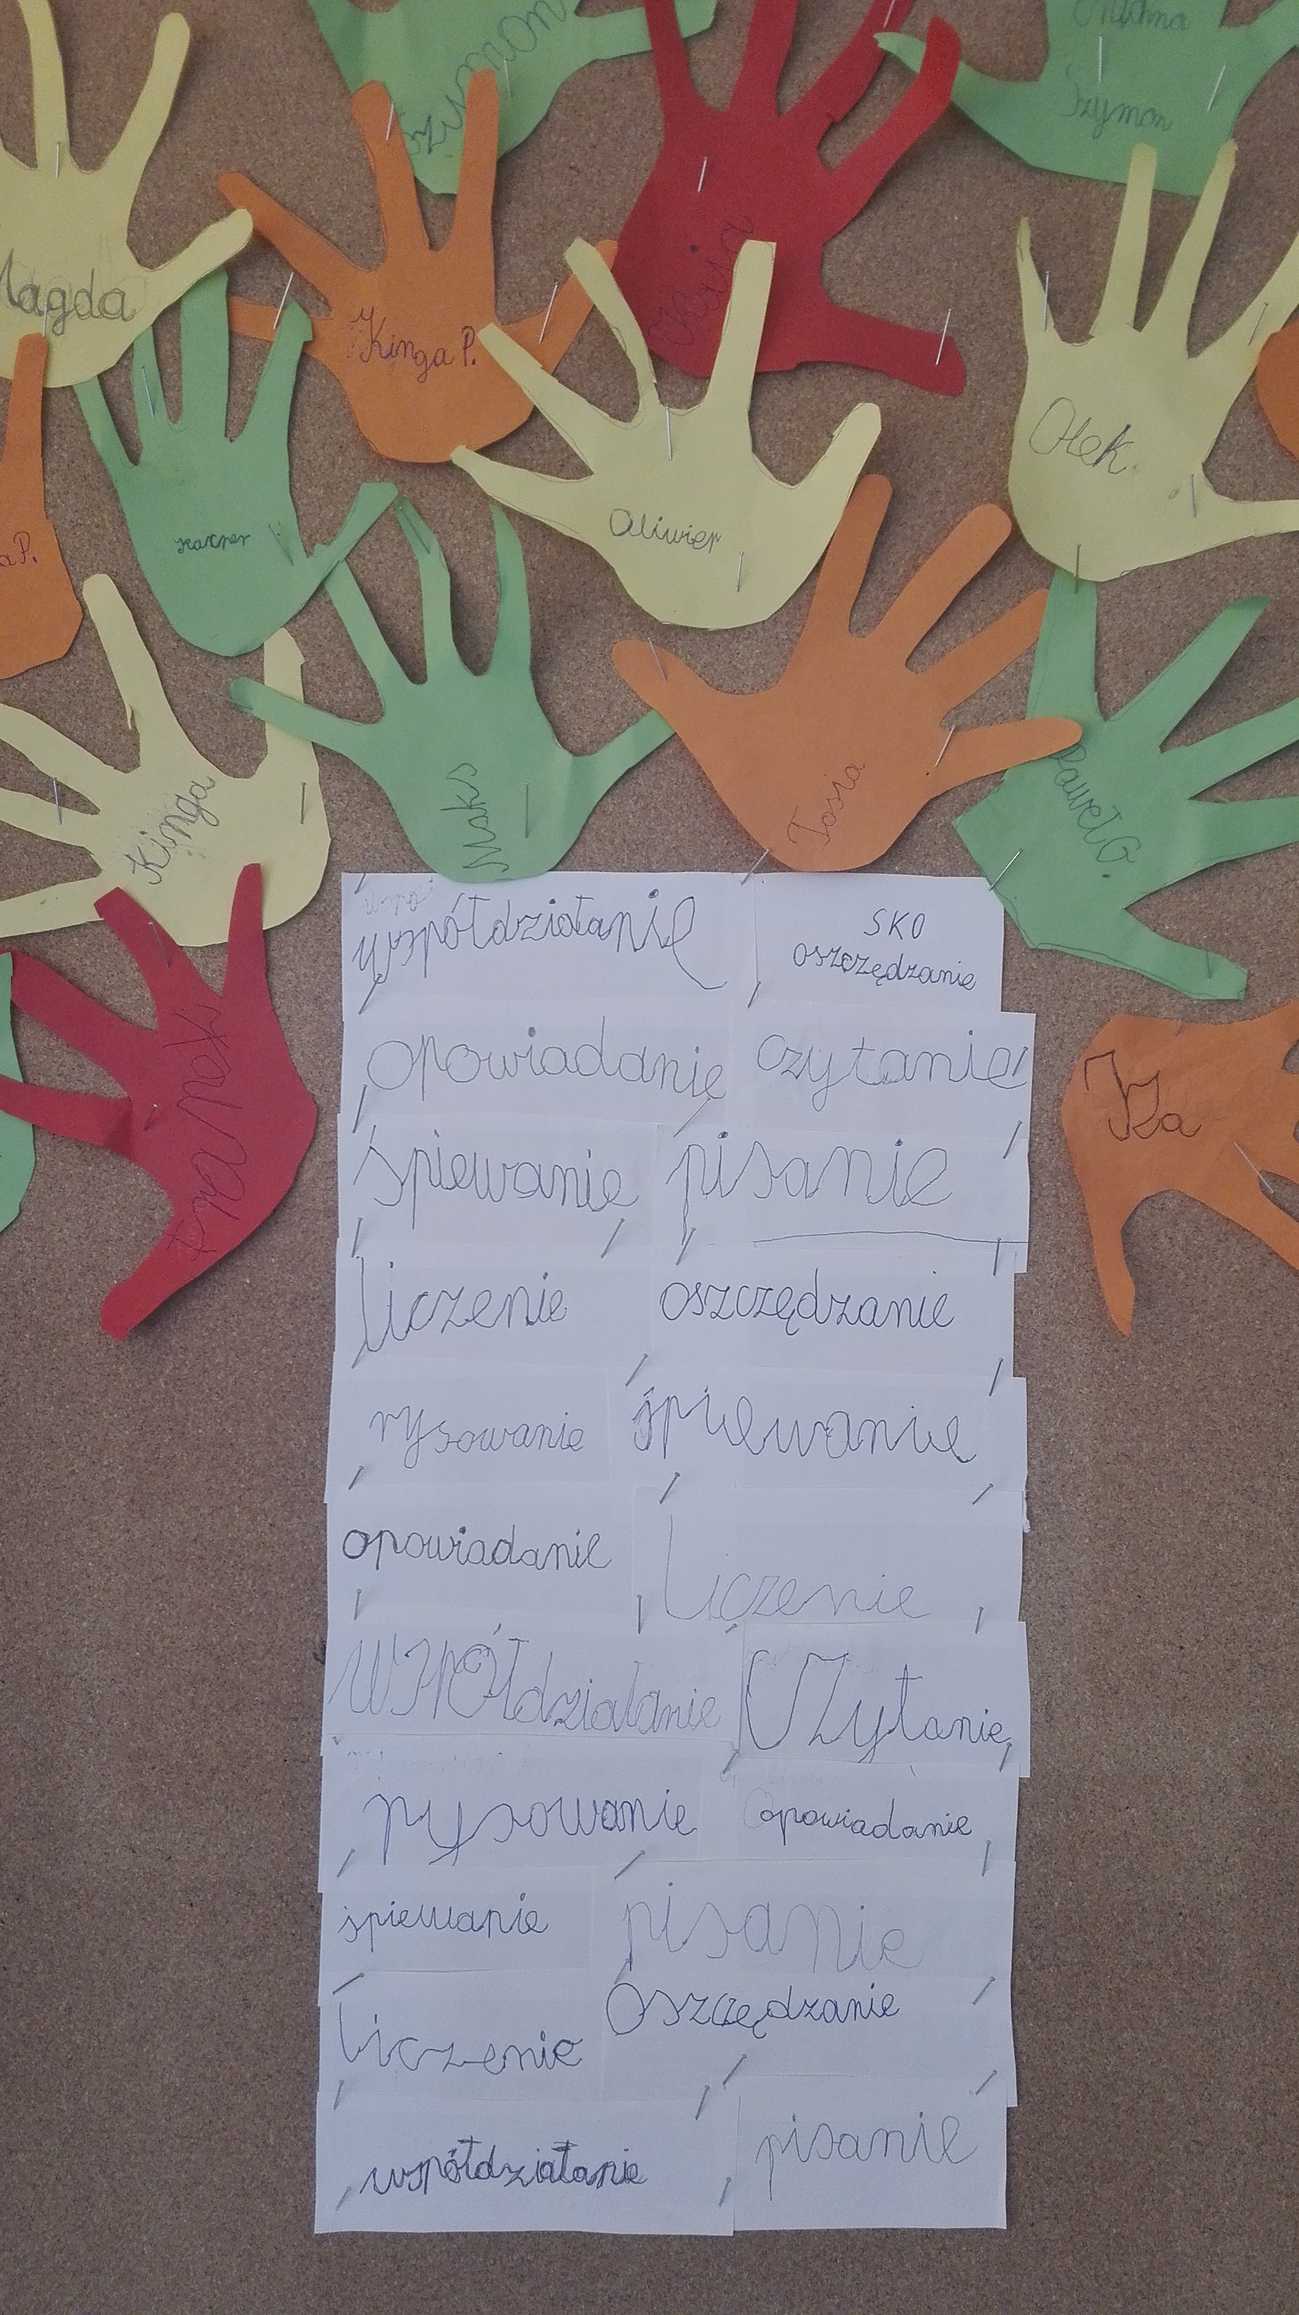 Szymon
Szymon
Kasia
Magda
Kinga P.
Olek
Oliwier
Kacper
aP.
Kinga
Maks
Tosia
Paweł G
Iza
współdziałanie
SKO
oszczędzanie
opowiadanie
czytanie
śpiewanie
pisanie
liczenie
oszczędzanie
rysowanie
śpiewanie
opowiadanie
Liczenie
WSPÓŁdziałanie
CZytanie
rysowanie
opowiadanie
śpiewanie
pisanie
liczenie
Oszczędzanie
współdziałanie
pisanie